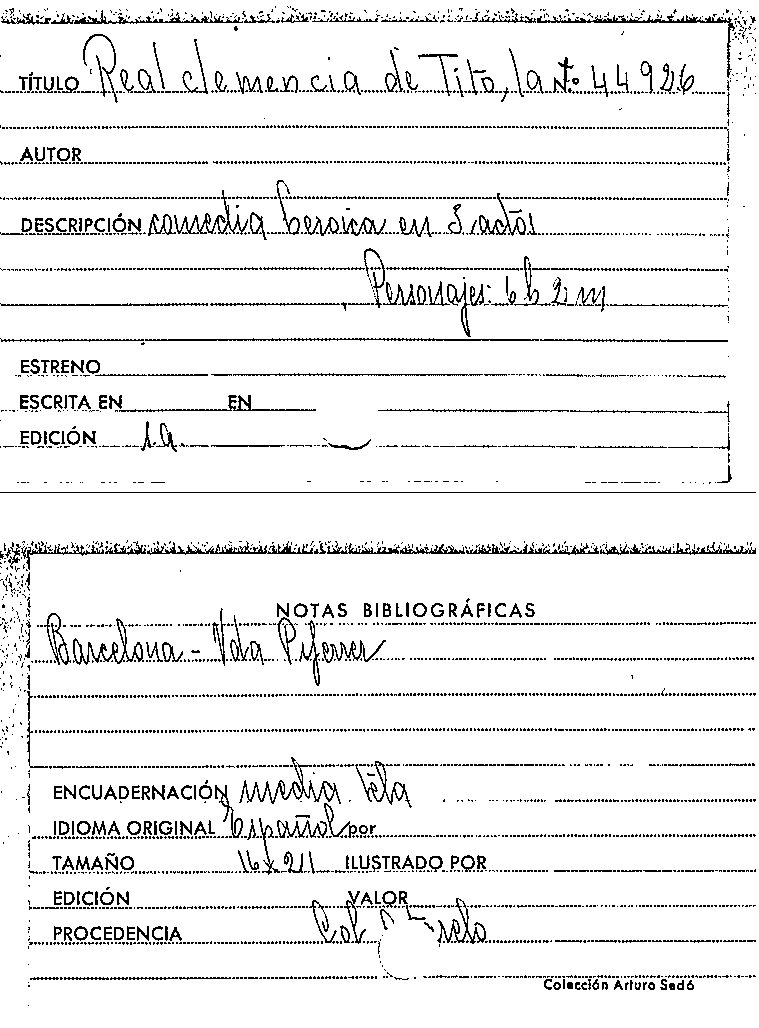 TÍTULO Real clemencia de Tito, la Nº 44926
AUTOR
DESCRIPCIÓN comedia heroica en 5 actos
Personajes: 6 h 2 m
ESTRENO
ESCRITA EN EN
EDICIÓN 1a.
NOTAS BIBLIOGRÁFICAS
Barcelona - Vda Piferrer
ENCUADERNACIÓN media tela
IDIOMA ORIGINAL Español por
TAMAÑO 16 x 211 ILUSTRADO POR
EDICIÓN VALOR
PROCEDENCIA Col
Colección Arturo Sedó